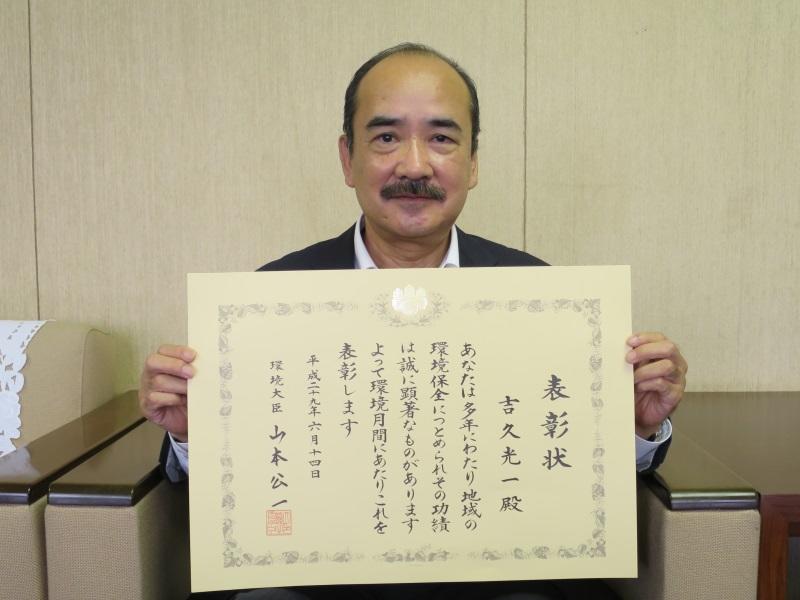 表彰状
吉久光一殿
あなたは多年にわたり地域の
環境保全につとめられその功績
は誠に顕著なものがあります
よって環境月間にあたりこれを
表彰します
平成二十九年六月十四日
環境大臣 山本公一